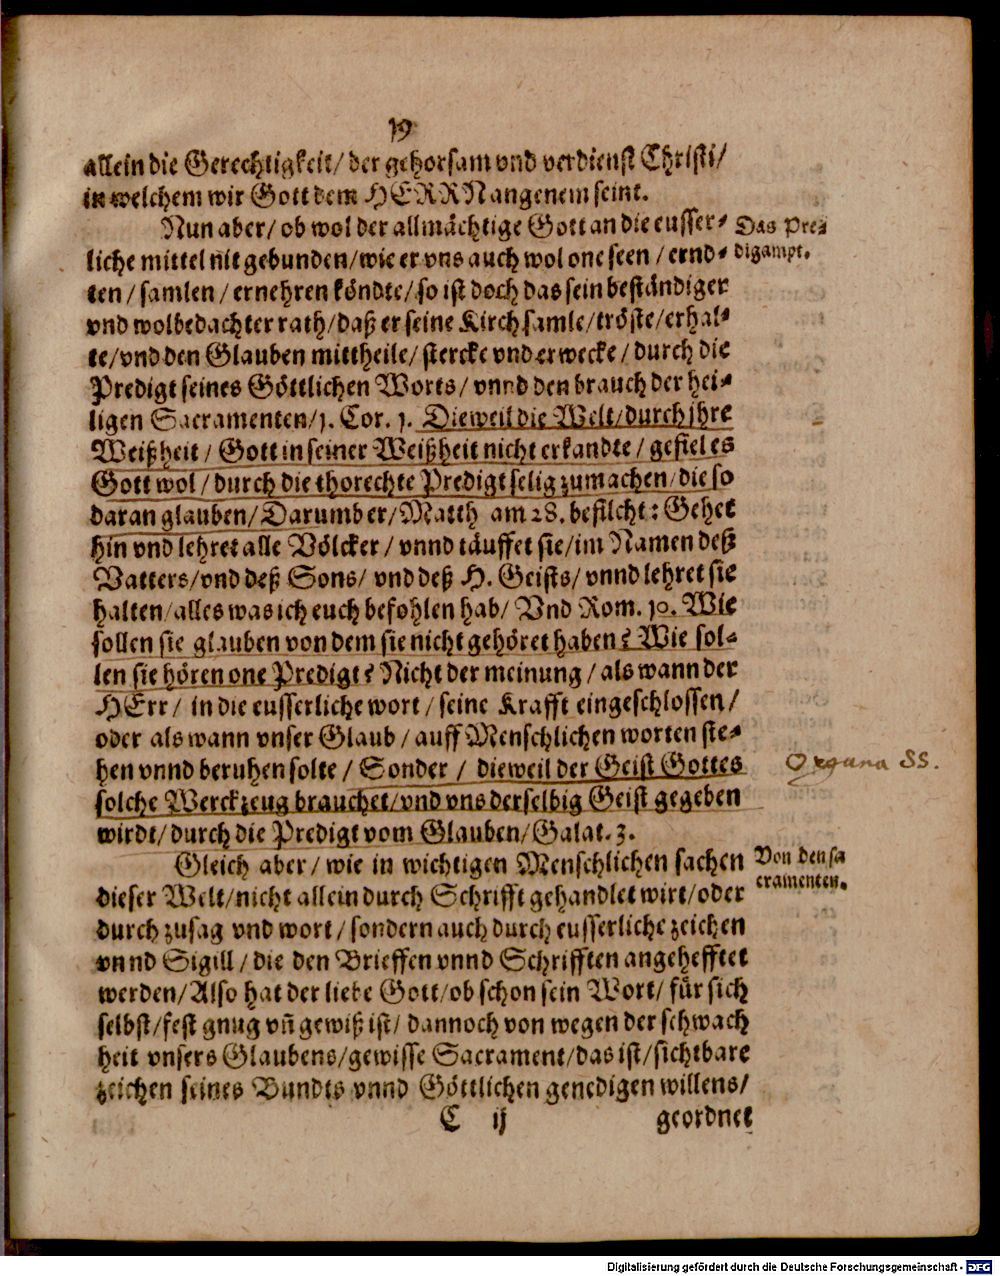 19
allein die Gerechtigkeit/ der gehorsam vnd verdienst Christi/
in welchem wir Gott dem HERRN angenem seint.
Nun aber/ ob wol der allmächtige Gott an die eusser-
Das Pre-
liche mittel nit gebunden/ wie er vns auch wol one seen / ernd-
digampt.
ten / samlen / ernehren köndte/ so ist doch das sein beständiger
vnd wolbedachter rath/ daß er seine Kirch samle/ tröste/ erhal-
te/ vnd den Glauben mittheile/ stercke vnd erwecke / durch die
Predigt seines Göttlichen Worts/ vnnd den brauch der hei-
ligen Sacramenten/ 1. Cor. 1. Dieweil die Welt/ durch jhre
Weißheit / Gott in seiner Weißheit nicht erkandte / gefiel es
Gott wol / durch die thorechte Predigt selig zumachen/ die so
daran glauben/ Darumb er/ Matth am 28. befilcht: Gehet
hin vnd lehret alle Völcker / vnnd täuffet sie/ im Namen deß
Vatters/ vnd deß Sons/ vnd deß H. Geists/ vnnd lehret sie
halten/ alles was ich euch befohlen hab/ Vnd Rom. 10. Wie
sollen sie glauben von dem sie nicht gehöret haben? Wie sol-
len sie hören one Predigt? Nicht der meinung / als wann der
HErr/ in die eusserliche wort / seine Krafft eingeschlossen /
oder als wann vnser Glaub / auff Menschlichen worten ste-
hen vnnd beruhen solte / Sonder / dieweil der Geist Gottes
Organa SS.
solche Werckzeug brauchet/ vnd vns derselbig Geist gegeben
wirdt/ durch die Predigt vom Glauben/ Galat. 3.
Gleich aber / wie in wichtigen Menschlichen sachen
Von den sa
dieser Welt/ nicht allein durch Schrifft gehandlet wirt/ oder
cramenten.
durch zusag vnd wort / sondern auch durch eusserliche zeichen
vnnd Sigill / die den Brieffen vnnd Schrifften angehefftet
werden/ Also hat der liebe Gott/ ob schon sein Wort/ für sich
selbst/ fest gnug vñ gewiß ist/ dannoch von wegen der schwach
heit vnsers Glaubens/ gewisse Sacrament/ das ist/ sichtbare
zeichen seines Bundts vnnd Göttlichen genedigen willens/
C ij
geordnet
Digitalisierung gefördert durch die Deutsche Forschungsgemeinschaft - DFG